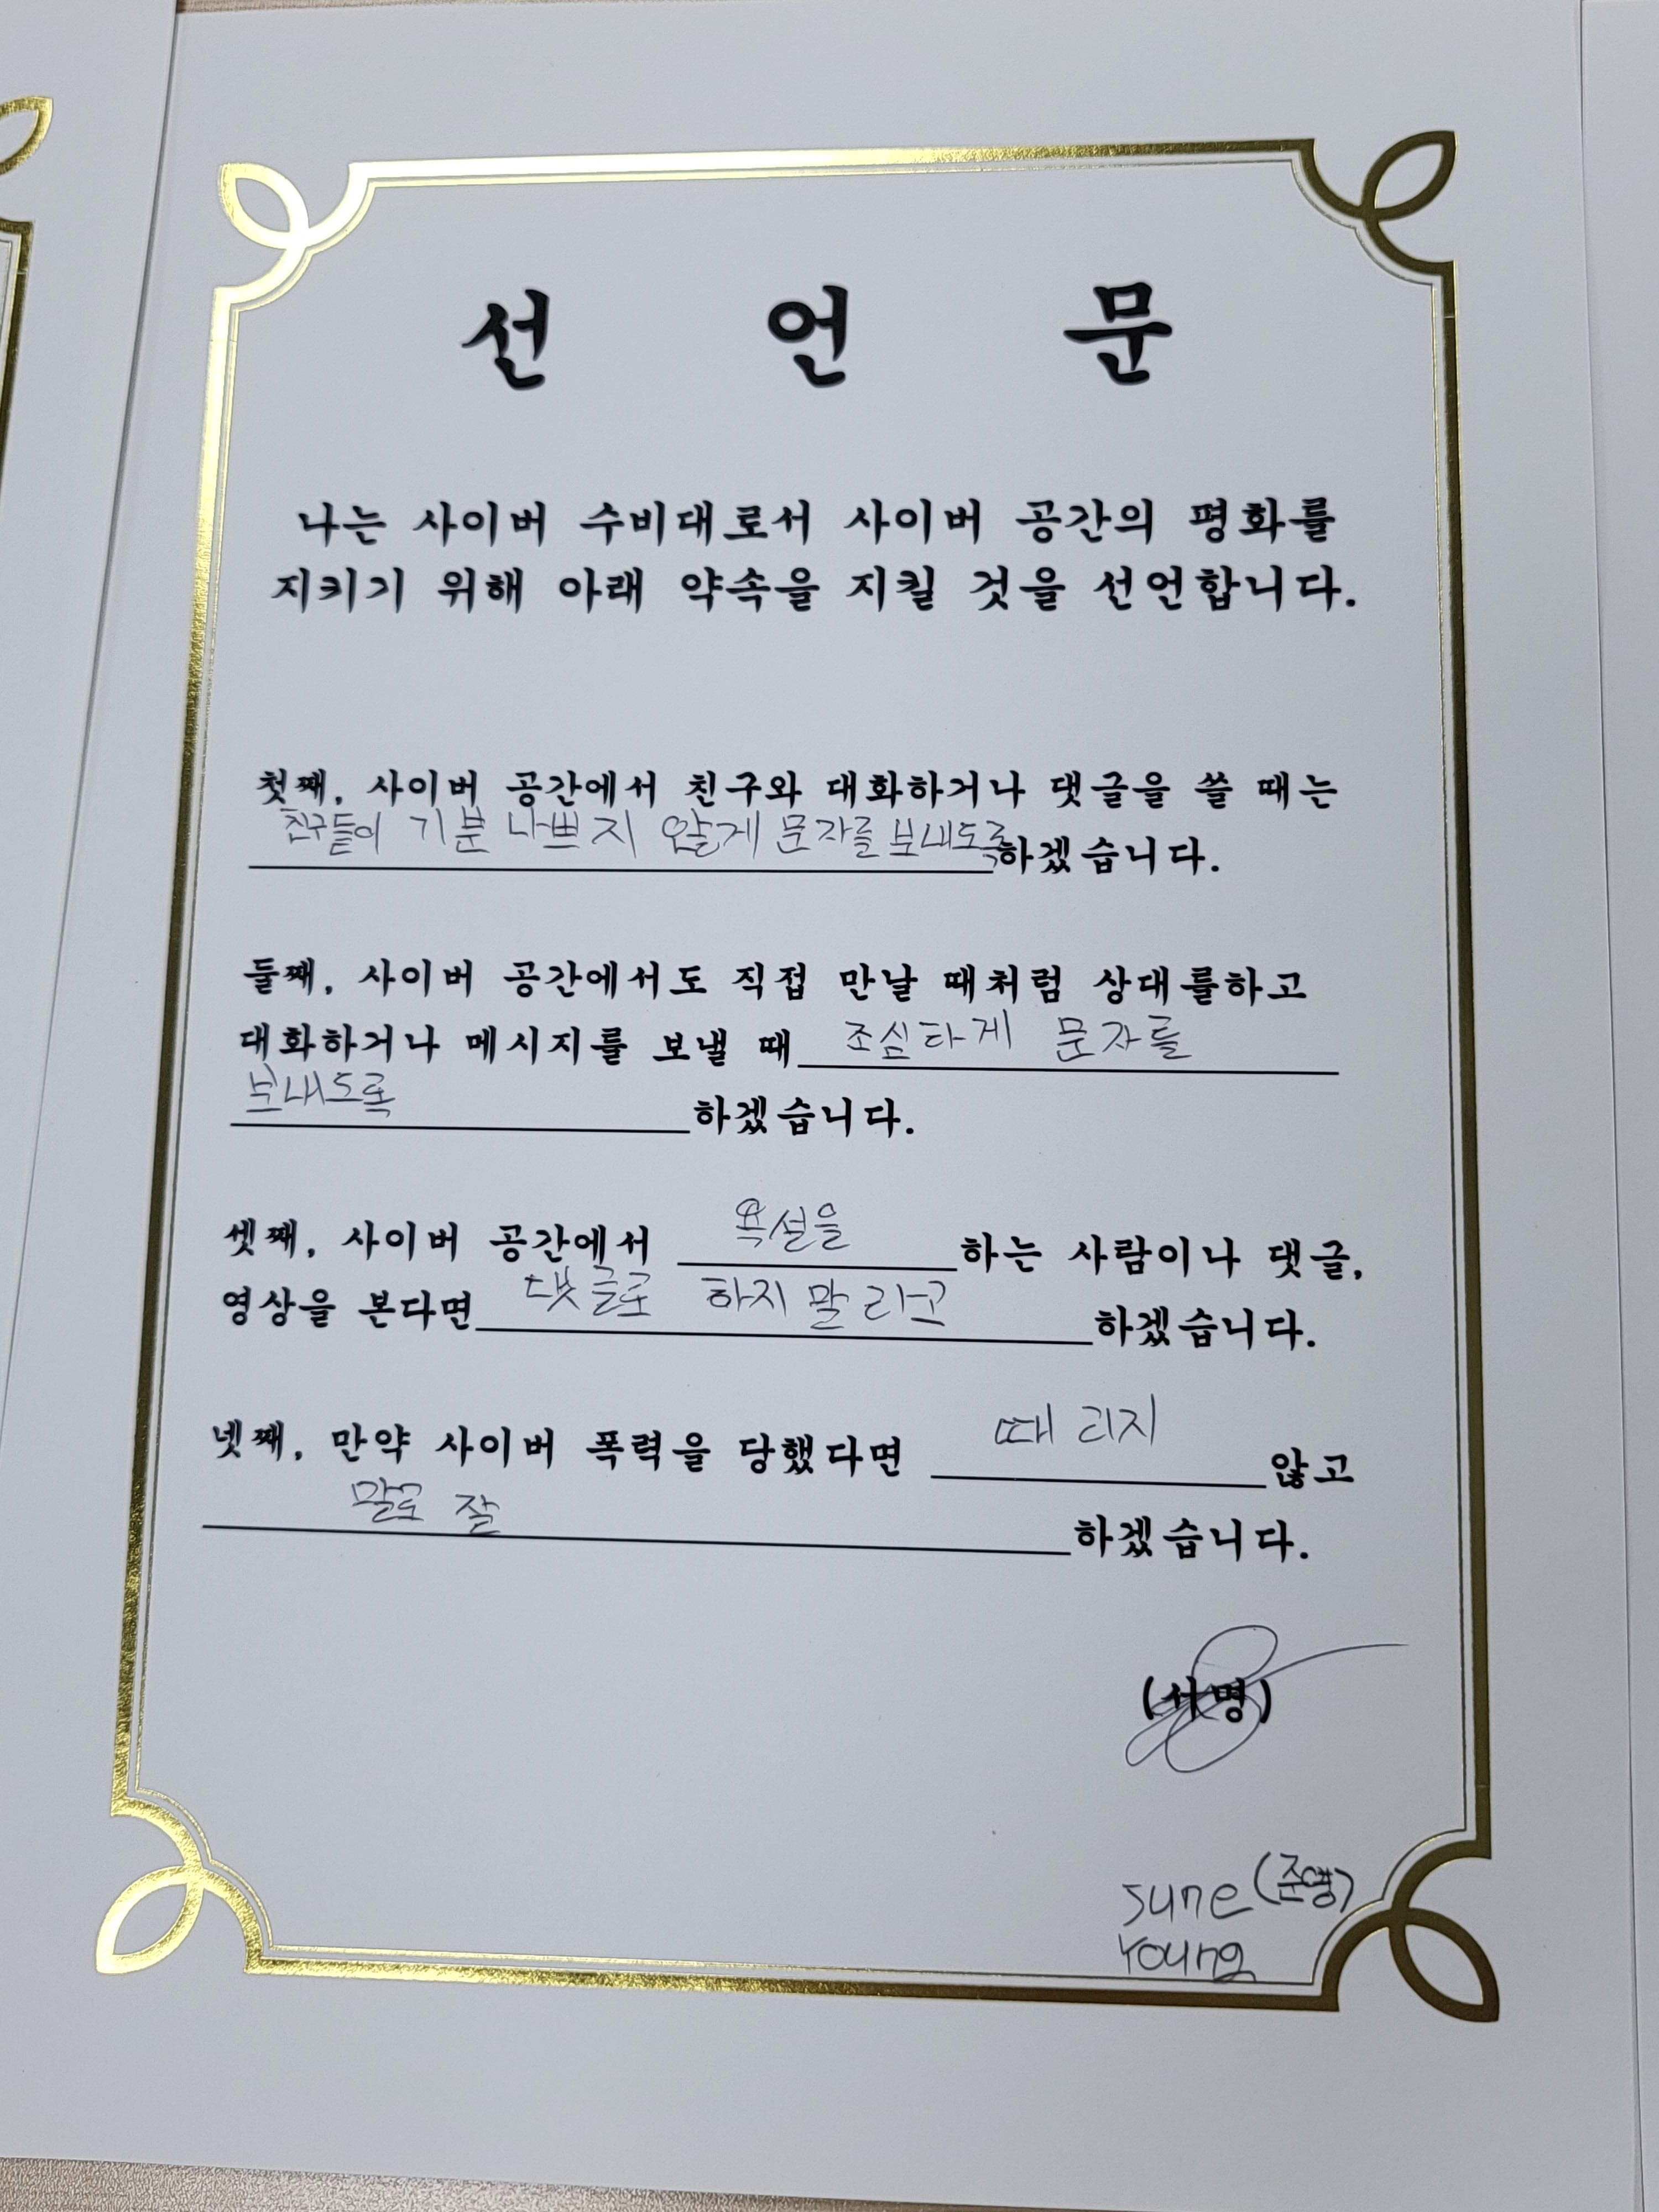 선 언 문
나는 사이버 수비대로서 사이버 공간의 평화를
지키기 위해 아래 약속을 지킬 것을 선언합니다.
첫째, 사이버 공간에서 친구와 대화하거나 댓글을 쓸 때는
친구들이 기분 나쁘지 않게 문자를 보내도록하겠습니다.
둘째, 사이버 공간에서도 직접 만날 때처럼 상대를하고
대화하거나 메시지를 보낼 때 조심타게 문자를
보내도록 하겠습니다.
셋째, 사이버 공간에서 욕설을 하는 사람이나 댓글,
영상을 본다면 댓글로 하지말라고 하겠습니다.
넷째, 만약 사이버 폭력을 당했다면 때리지 않고
말로 잘 하겠습니다.
(서명)
June (준영)
Young